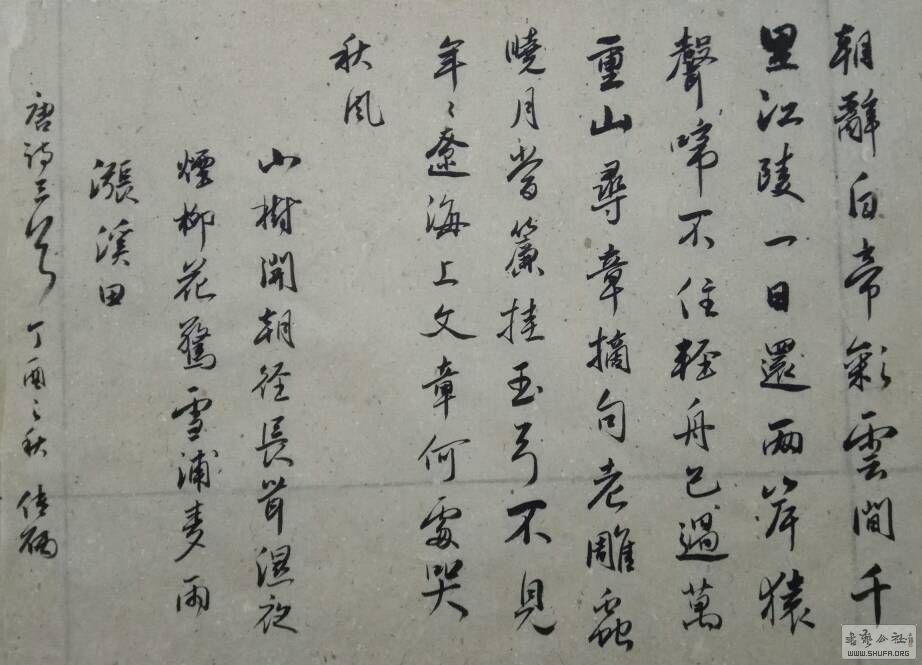 朝辭白帝彩雲間千
里江陵一日還兩岸猿
聲啼不住輕舟已過萬
重山尋章摘句老雕蟲
曉月當簾挂玉弓不見
年々遼海上文章何處哭
秋風
小樹開朝徑長茸濕夜
煙柳花驚雪浦麥雨
漲溪田
唐詩三首 丁酉之秋
书艺公社
WWW.SHUFA.ORG